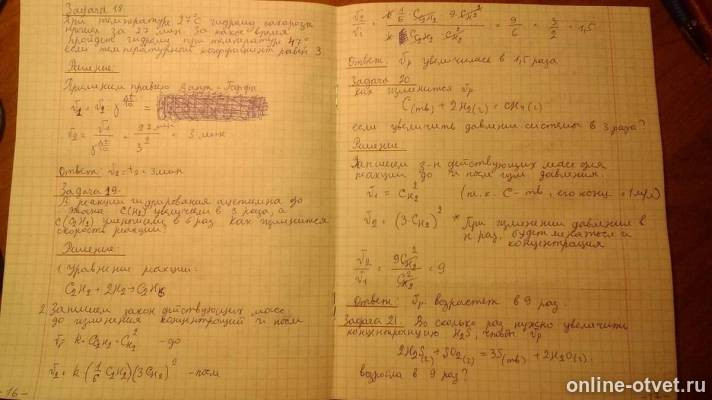 Задача 18.
При температуре 27°С гидролиз сахарозы
прошел за 27 мин. За какое время
пройдет гидролиз при температуре 47°
если температурный коэффициент равен 3
Решение:
Применяем правило Вант-Гоффа
v₁ = v₂ γ^(Δt/10) =
= 3 мин
Ответ: = 3 мин
Задача 19.
В реакции гидрирования ацетилена до
этана C(H₂) увеличили в 3 раза, а
C(C₂H₂) в 6 раз. Как изменится
скорость реакции?
Решение:
1. Уравнение реакции:
C₂H₂ + 2H₂ → C₂H₆
2. Запишем закон действующих масс
до изменения концентраций и после
v₁ = k · C C₂H₂ · C H₂² - до
v₂ = k · (1/6 C₂H₂)(3 C H₂)² - после
- 16 -
v₂/v₁ = = 9/6 = 3/2 = 1,5
Ответ: Vр увеличилась в 1,5 раза
Задача 20.
как изменится Vр
C(тв) + 2H₂(г) = CH₄(г)
если увеличить давление системы в 3 раза?
Решение
Запишем з-н действующих масс для
реакции до и после изм давления.
v₁ = C H₂² (т.к. C - тв, его конц = 1 )
v₂ = (3·C H₂)² * При изменении давления в
n раз, будет меняться и
концентрация
v₂/v₁ = 9C H₂²/C H₂² = 9
Ответ: Vр возрастет в 9 раз
Задача 21. Во сколько раз нужно увеличить
концентрацию H₂S, чтобы Vр
2H₂S(г) + SO₂(г) = 3S(тв) + 2H₂O(г)
возросла в 9 раз?
online-otvet.ru